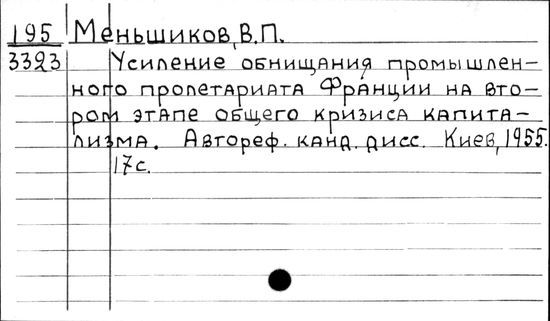 195 Меньшиков, В.П.
3323 Усиление обнищания промышлен-
ного пролетариата Франции на вто-
ром этапе общего кризиса капита-
лизма. Автореф. канд. дисс. Киев, 1955.
17с.